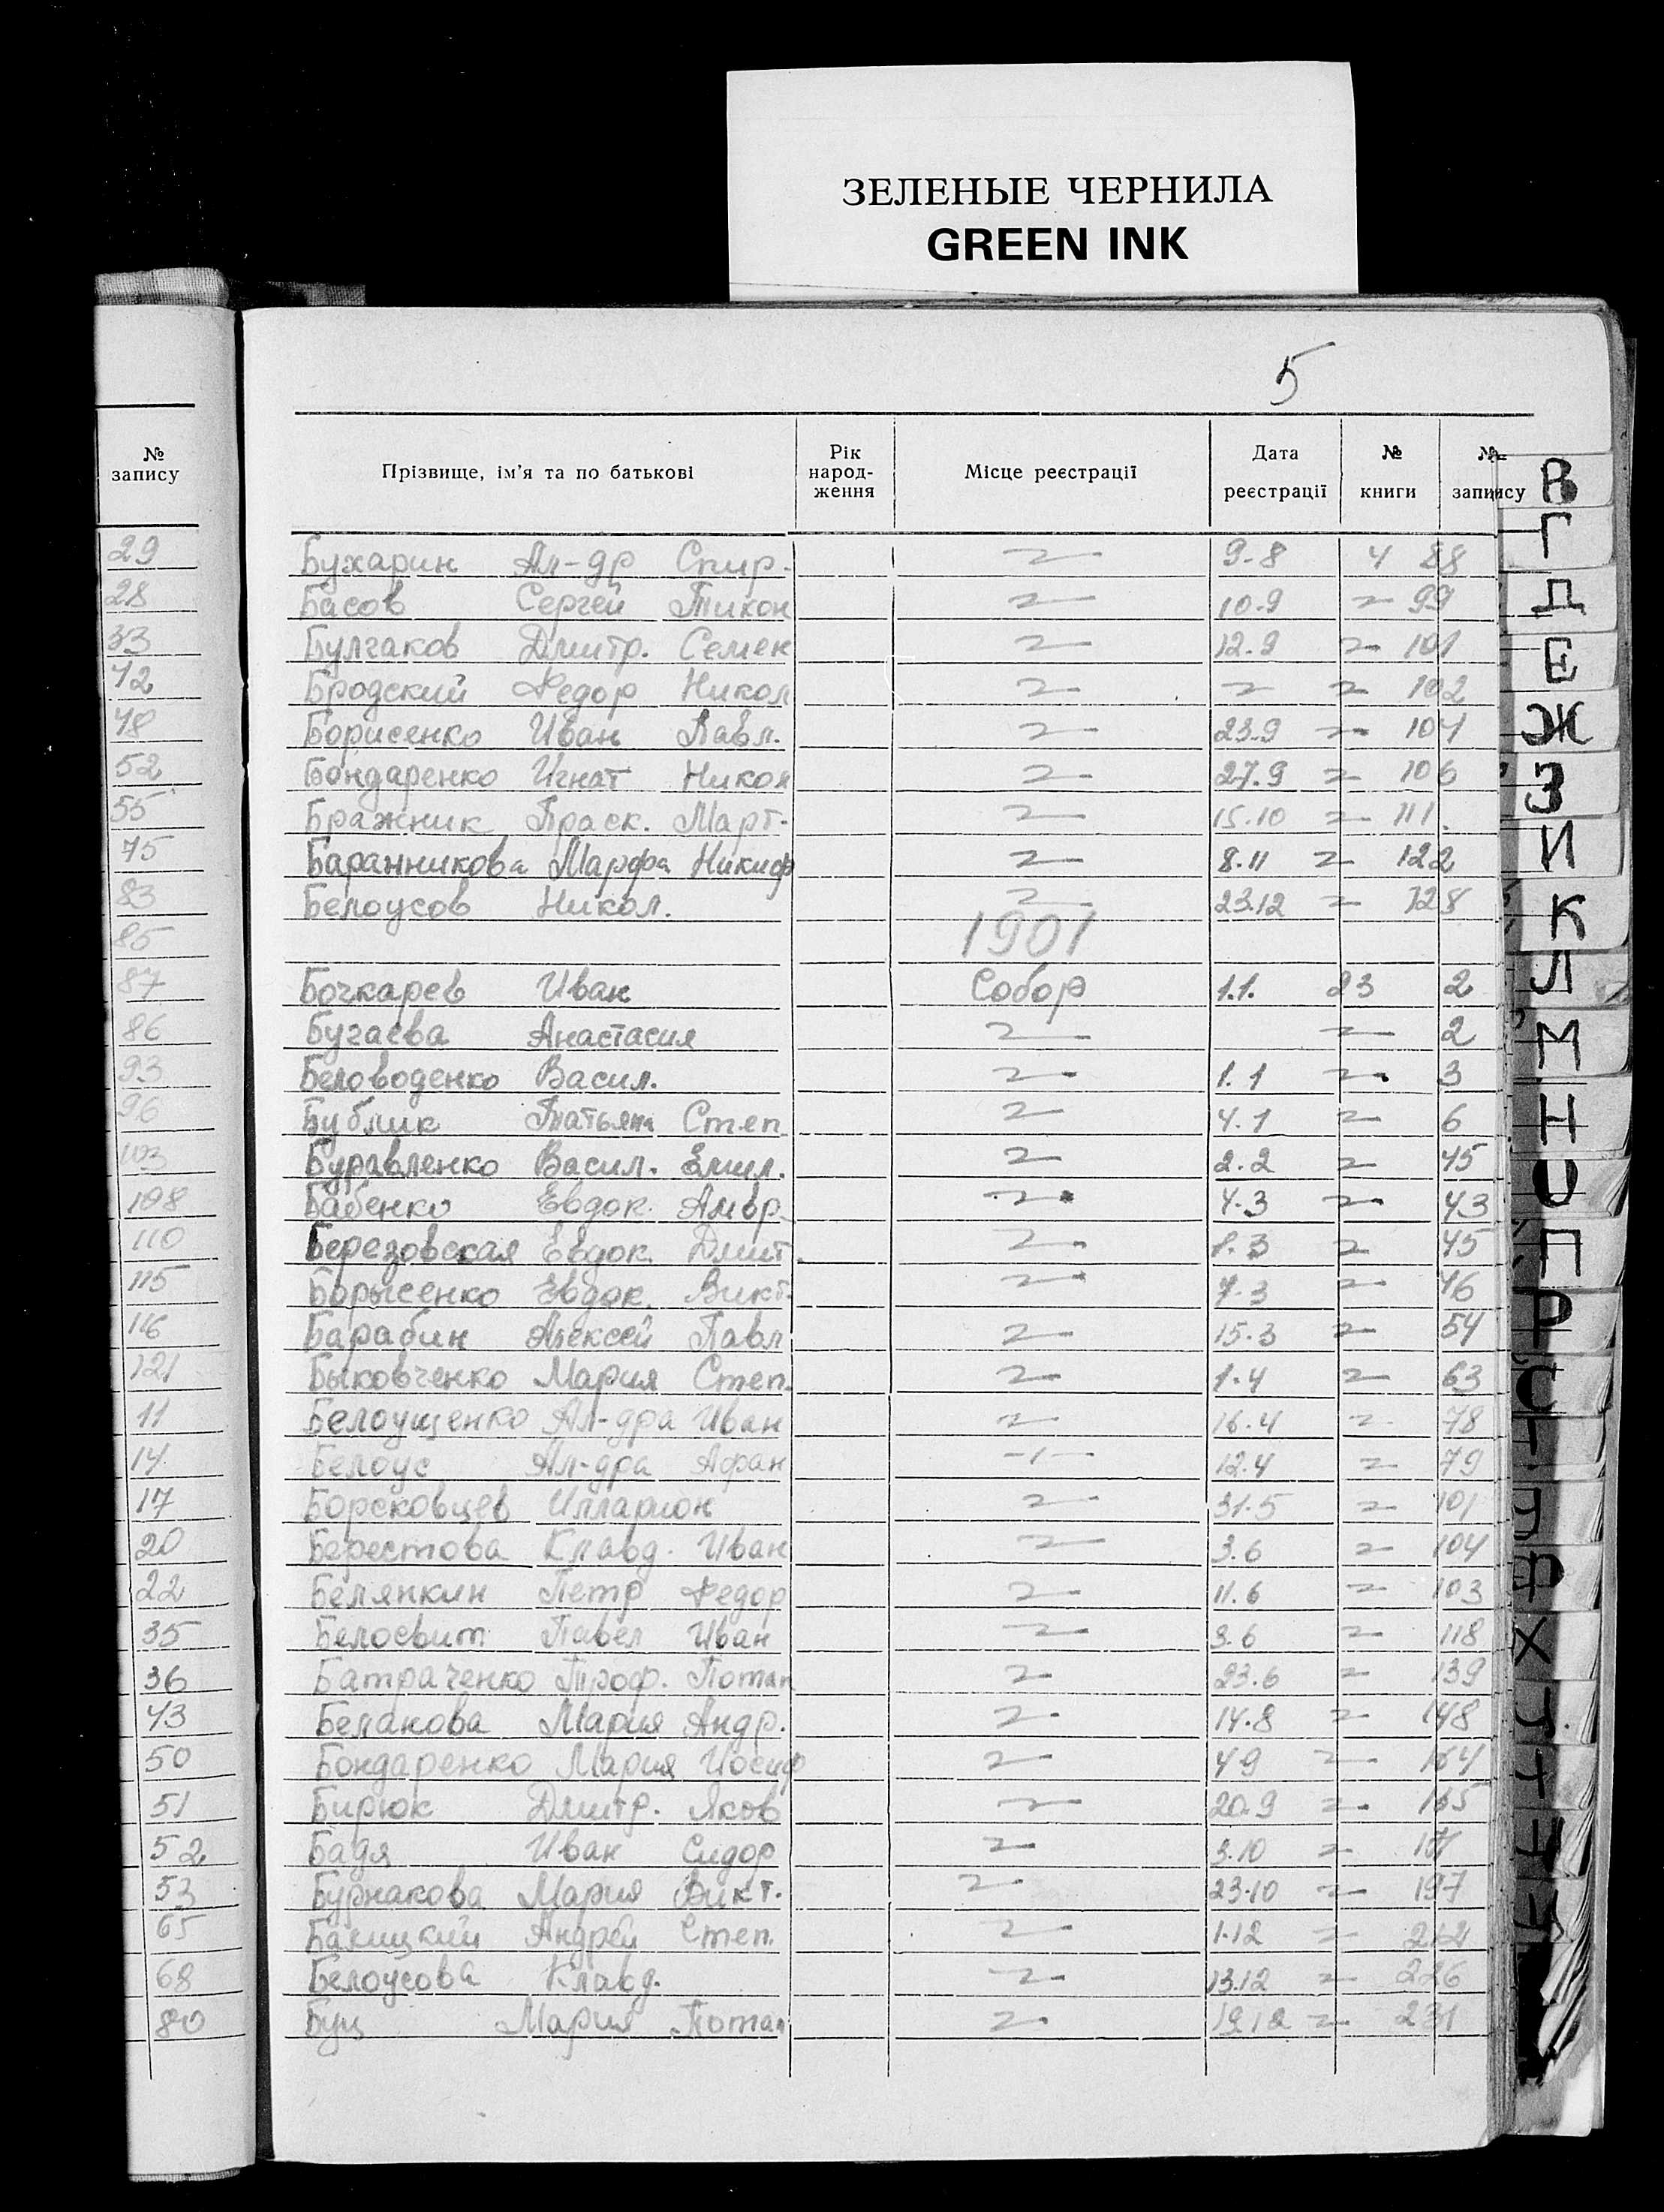 ЗЕЛЕНЫЕ ЧЕРНИЛА
GREEN INK
5
№ запису
Прізвище, ім'я та по батькові Рік народ-ження Місце реєстрації Дата реєстрації № книги № запису
29 Бухарин Ал-др Спир. 〃 9-8 4 88
28 Басов Сергей Тихон 〃 10.9 〃 99
33 Булгаков Дмитр. Семен 〃 12.9 〃 101
42 Бродский Федор Никол 〃 〃 〃 102
48 Борисенко Иван Павл. 〃 23.9 〃 104
52 Бондаренко Игнат Никол 〃 27.9 〃 106
55 Бражник Праск. Март. 〃 15.10 〃 111.
75 Баранникова Марфа Никиф 〃 8.11 〃 122
83 Белоусов Никол. 〃 23.12 〃 128
85 1901
87 Бочкарев Иван Собор 1.1. 23 2
86 Бугаева Анастасия 〃 〃 2
93 Беловоденко Васил. 〃 1.1 〃 3
96 Бублик Татьяна Степ. 〃 4.1 〃 6
103 Буравленко Васил. Емил. 〃 2.2 〃 45
108 Бабенко Евдок. Амвр. 〃 4.3 〃 43
110 Березовская Евдок. Дмит. 〃 1.3 〃 45
115 Борысенко Евдок. Викт. 〃 7.3 〃 46
116 Барабин Алексей Павл 〃 15.3 〃 54
121 Быковченко Мария Степ. 〃 1.4 〃 63
11 Белоущенко Ал-дра Иван 〃 16.4 〃 78
14 Белоус Ал-дра Афан -1- 12.4 〃 79
17 Борсковцев Илларион 〃 31.5 〃 101
20 Берестова Клавд. Иван 〃 3.6 〃 104
22 Белянкин Петр Федор 〃 11.6 〃 103
35 Белосвит Павел Иван 〃 3.6 〃 118
36 Батраченко Троф. Потап 〃 23.6 〃 139
43 Белакова Мария Андр. 〃 14.8 〃 148
50 Бондаренко Мария Иосиф 〃 4 9 〃 164
51 Бирюк Дмитр. Яков 〃 20.9 〃 165
52 Бадя Иван Сидор 〃 3.10 〃
53 Бурнакова Мария Викт. 〃 23.10 〃 197
65 Балицкий Андрей Степ. 〃 1.12 〃 212
68 Белоусова Клавд. 〃 13.12 〃 226
80 Буц Мария Потап 〃 19.12 〃 231
В
Г
Д
Е
Ж
З
И
К
Л
М
Н
О
П
Р
С
Т
Х